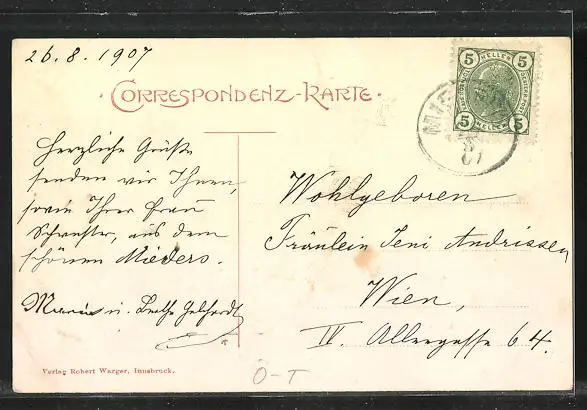 26.8.1907
CORRESPONDENZ-KARTE.
5 HELLER 5
5 HELLER 5
Herzliche Grüße
senden wir Ihnen,
sowie Ihrer Frau
Schwester, aus dem
schönen Mieders.
Marius u. Gebhardt
Wohlgeboren
Fräulein Jeni Andrissen
Wien,
IV. Alleegasse 64.
Verlag Robert Warger, Innsbruck.
O-T